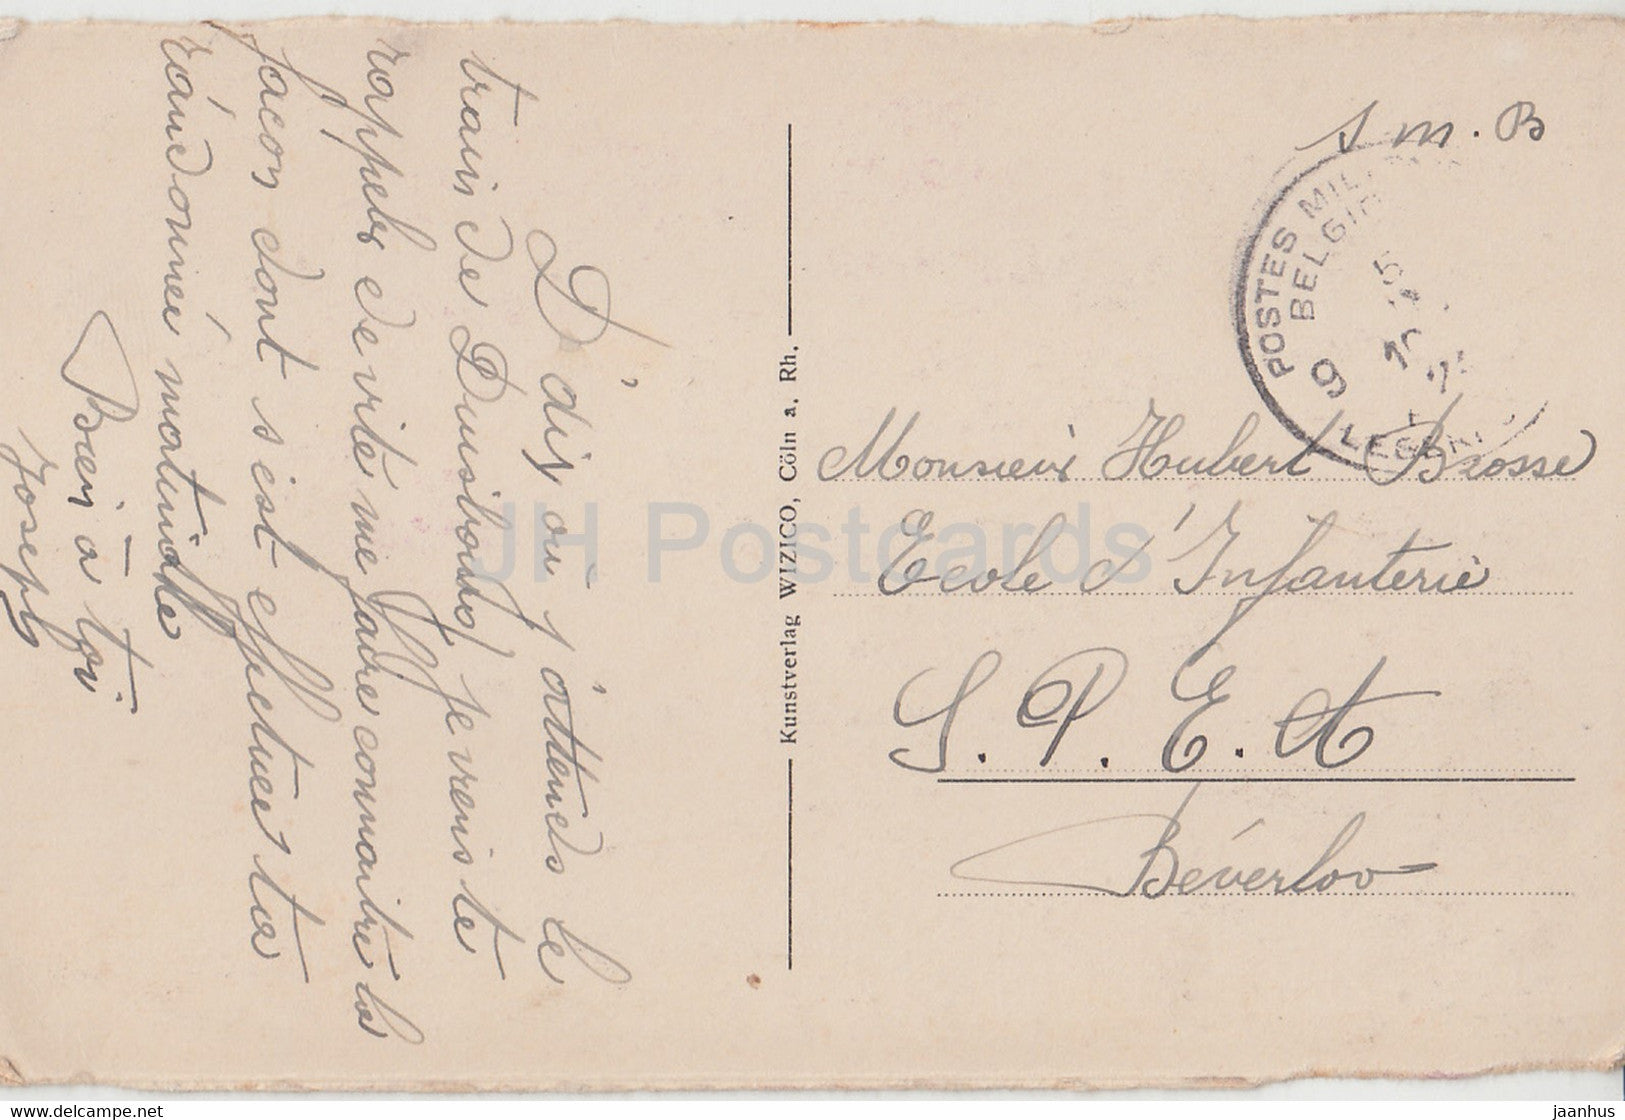 D'dix où j'attends le
train de Duisbourg je viens te
rappeler de vite me faire connaitre la
façon dont s'est effectuée ta
randonnée matinale
Bien à toi
Joseph
Kunstverlag WIZICO, Cöln a. Rh.
S. M. B
POSTES MIL
BELGI
9
Monsieur Hubert Brosse
Ecole d'Infanterie
S. P. E. A
Béverloo
JH Postcards
www.delcampe.net
jaanhus